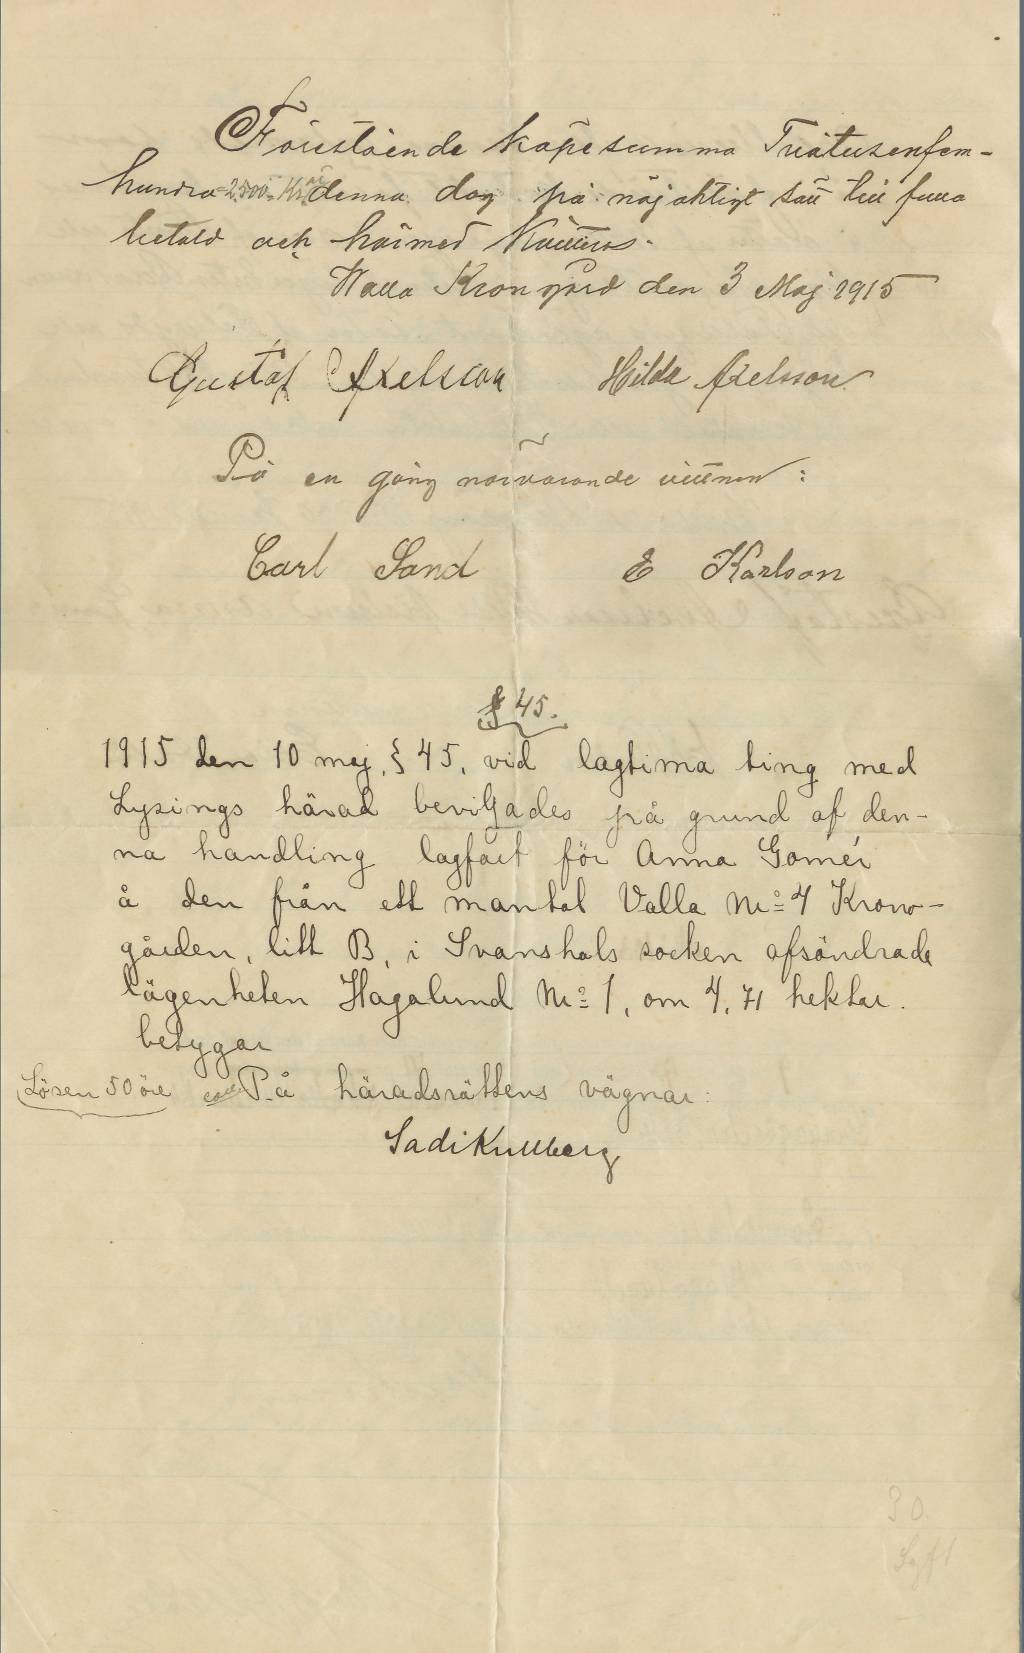 Förestående köpesumma Tvåtusenfem-
hundra 2,500 Kr är denna dag på nöjaktigt sätt till fullo
betald och härmed kvitteras.
Walla Krongård den 3 Maj 1915
Gustaf Axelsson Hilda Axelsson
På en gång närvarande vittnen:
Carl Sand E Karlson
§ 45.
1915 den 10 maj, § 45, vid lagtima ting med
Lysings härad beviljades på grund af den-
na handling lagfart för Anna Gomér
å den från ett mantal Valla No 4 Krono-
gården, litt B, i Svanshals socken afsöndrade
lägenheten Hagalund No 1, om 4,71 hektar.
betygar
Lösen 50 öre På häradsrättens vägnar:
Sadi Kullberg
30.